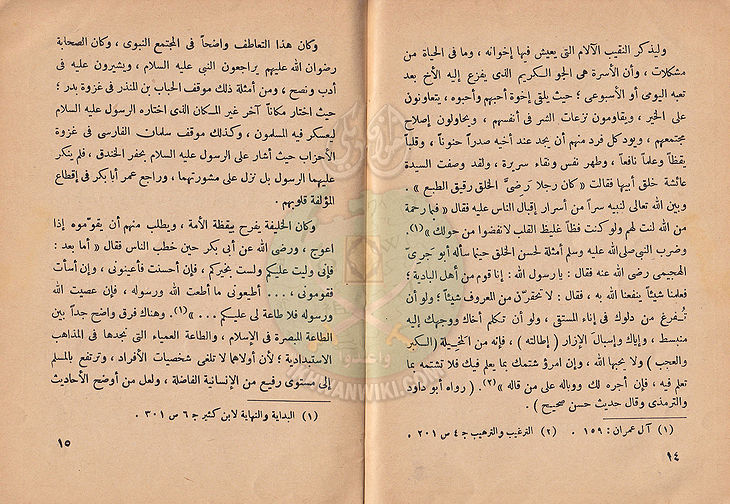 وليذكر النقيب الآلام التى يعيش فيها إخوانه ، وما فى الحياة من
مشكلات ، وأن الأسرة هى الجو السكريم الذى يفزع إليه الأخ بعد
تعبه اليومى أو الأسبوعى ؛ حيث يلقى إخوة أحبهم وأحبوه ، يتعاونون
على الخير ، ويقاومون نزعات الشر فى أنفسهم ، ويحاولون إصلاح
مجتمعهم ، وبود كل فرد منهم أن يجد عند أخيه صدراً حنوناً ، وقلباً
يقظاً وعلماً نافعاً ، وطهر نفس ونقاء سريرة ، ولقد وصفت السيدة
عائشة خلق أبيها فقالت « كان رجلا رَضىَّ الخلق رقيق الطبع » .
وبين الله تعالى لنبيه سراً من أسرار إقبال الناس عليه فقال « فبما رحمة
من الله لنت لهم ولو كنت فظاً غليظ القلب لانفضوا من حولك »(١).
وضرب النبى صلى الله عليه وسلم أمثلة لحسن الخلق حينما سأله أبو جرىّ
الهجيمى رضى الله عنه فقال : يا رسول الله : إنا قوم من أهل البادية ؛
فعلمنا شيئاً ينفعنا الله به ، فقال : لا تحقرنّ من المعروف شيئاً ؛ ولو أن
تُـفـرغ من دلوك فى إناء المستقى ، ولو أن تـكلم أخاك ووجهك إليه
منبسط ، وإياك وإسبالَ الإزار ( إطالته ) ، فإنه من المَخِيلة ( السكبر
والعجب ) ولا يحبها الله ، وإن امرؤ شتمك بما يعلم فيك فلا تشتمه بما
تعلم فيه ، فإن أجره لك ووباله على من قاله »(٢). ( رواه أبو داود
والترمذى وقال حديث حسن صحيح ) .
(١) آل عمران : ١٥٩ . (٢) الترغيب والترهيب ج ٤ ص ٢٠١ ،
١٤
وكان هذا التعاطف واضحاً فى المجتمع النبوى ، وكان الصحابة
رضوان الله عليهم يراجعون النبى عليه السلام ، ويشيرون عليه فى
أدب ونصح ، ومن أمثلة ذلك موقف الحباب بن المنذر فى غزوة بدر ؛
حيث اختار مكاناً آخر غير المسكان الذى اختاره الرسول عليه السلام
ليعسكر فيه المسلمون ، وكذلك موقف سلمان الفارسى فى غزوة
الأحزاب حيث أشار على الرسول عليه السلام بحفر الخندق ، فلم ينكر
عليهما الرسول بل نزل على مشورتهما ، وراجع عمر أبا بكر فى إقطاع
المؤلفة قلوبهم .
وكان الخليفة يفرح بيقظة الأمة ، ويطلب منهم أن يقوّموه إذا
اعوج ، ورضى الله عن أبى بكر حين خطب الناس فقال « أما بعد :
فإنى وليت عليكم ولست بخيركم ، فإن أحسنت فأعينونى ، وإن أسأت
فقومونى ، ... أطيعونى ما أطعت الله ورسوله ، فإن عصيت الله
ورسوله فلا طاعة لى عليكم ... »(١). وهناك فرق واضح جداً بين
الطاعة المبصرة فى الإسلام ، والطاعة العمياء التى نجدها فى المذاهب
الاستبدادية ؛ لأن أولاهما لا تلغى شخصيات الأفراد ، وترتفع بالمسلم
إلى مستوى رفيع من الإنسانية الفاضلة ، ولعل من أوضح الأحاديث
(١) البداية والنهاية لابن كثير ج ٦ ص ٣٠١ .
١٥
وأعدوا
IKHWANWIKI.COM